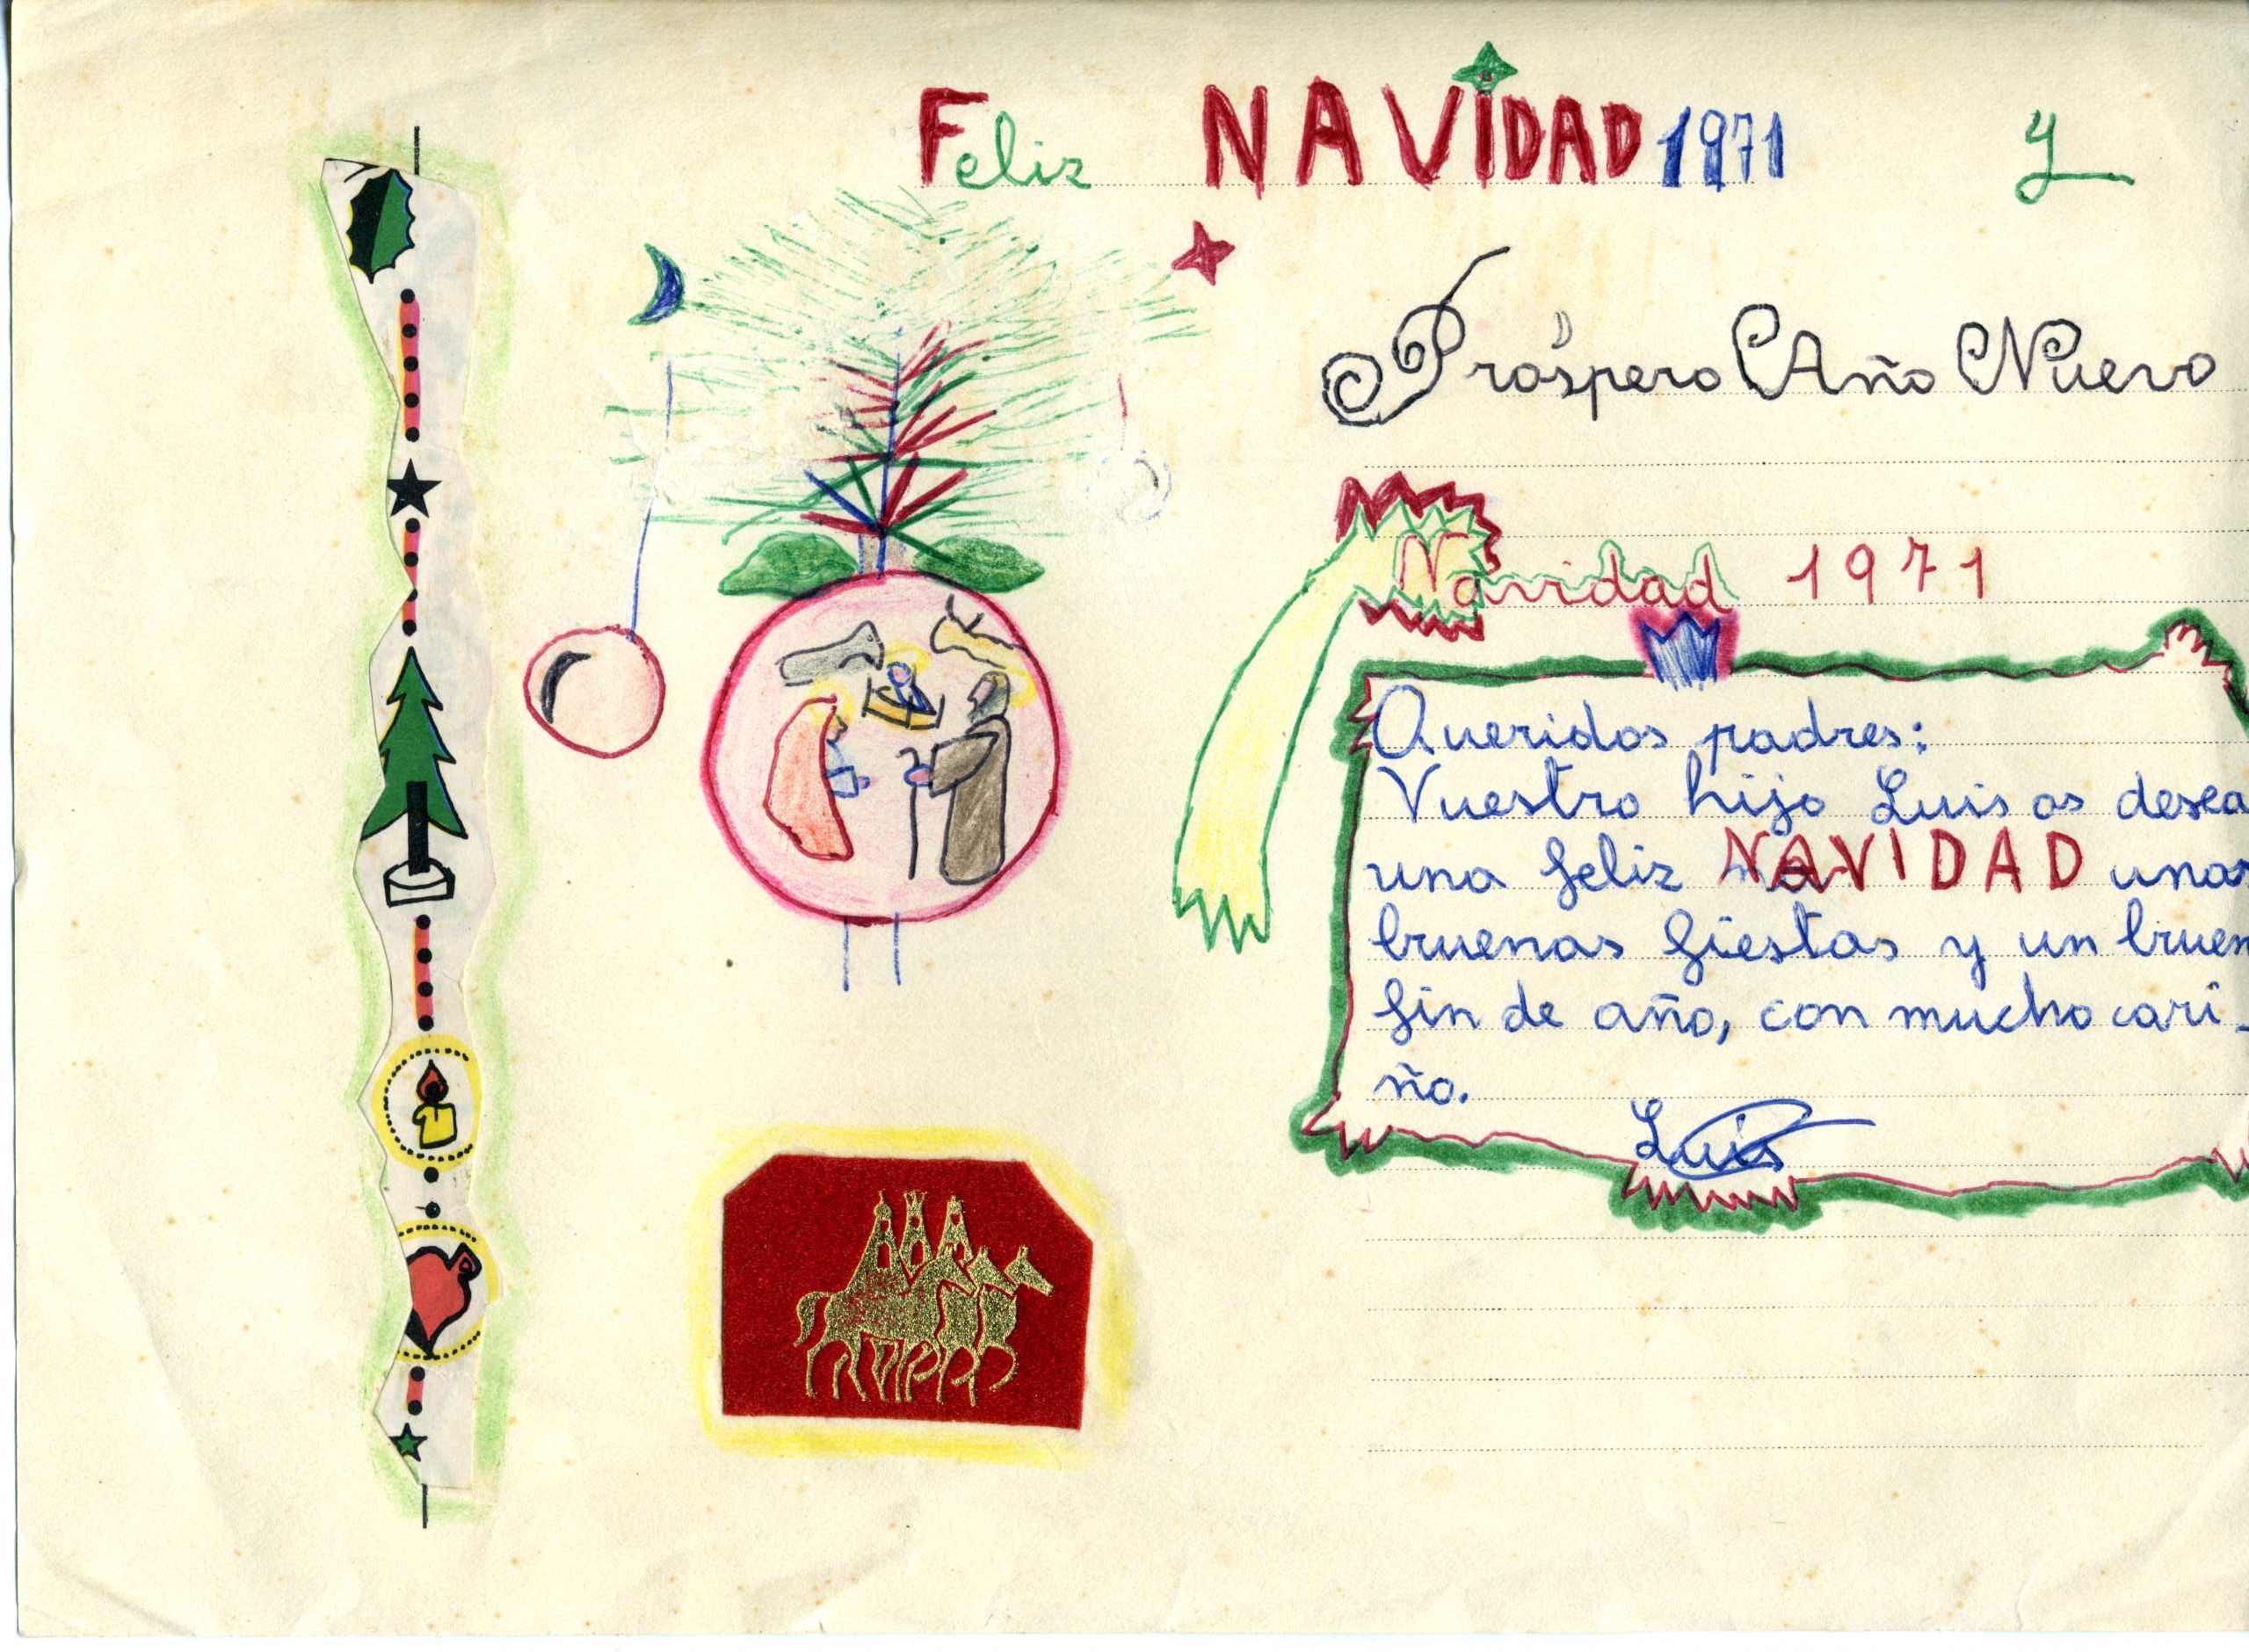 Feliz NAVIDAD 1971 y
Próspero Año Nuevo
Navidad 1971
Queridos padres:
Vuestro hijo Luis os desea
una feliz NAVIDAD unas
buenas fiestas y un buen
fin de año, con mucho cari-
ño.
Luis